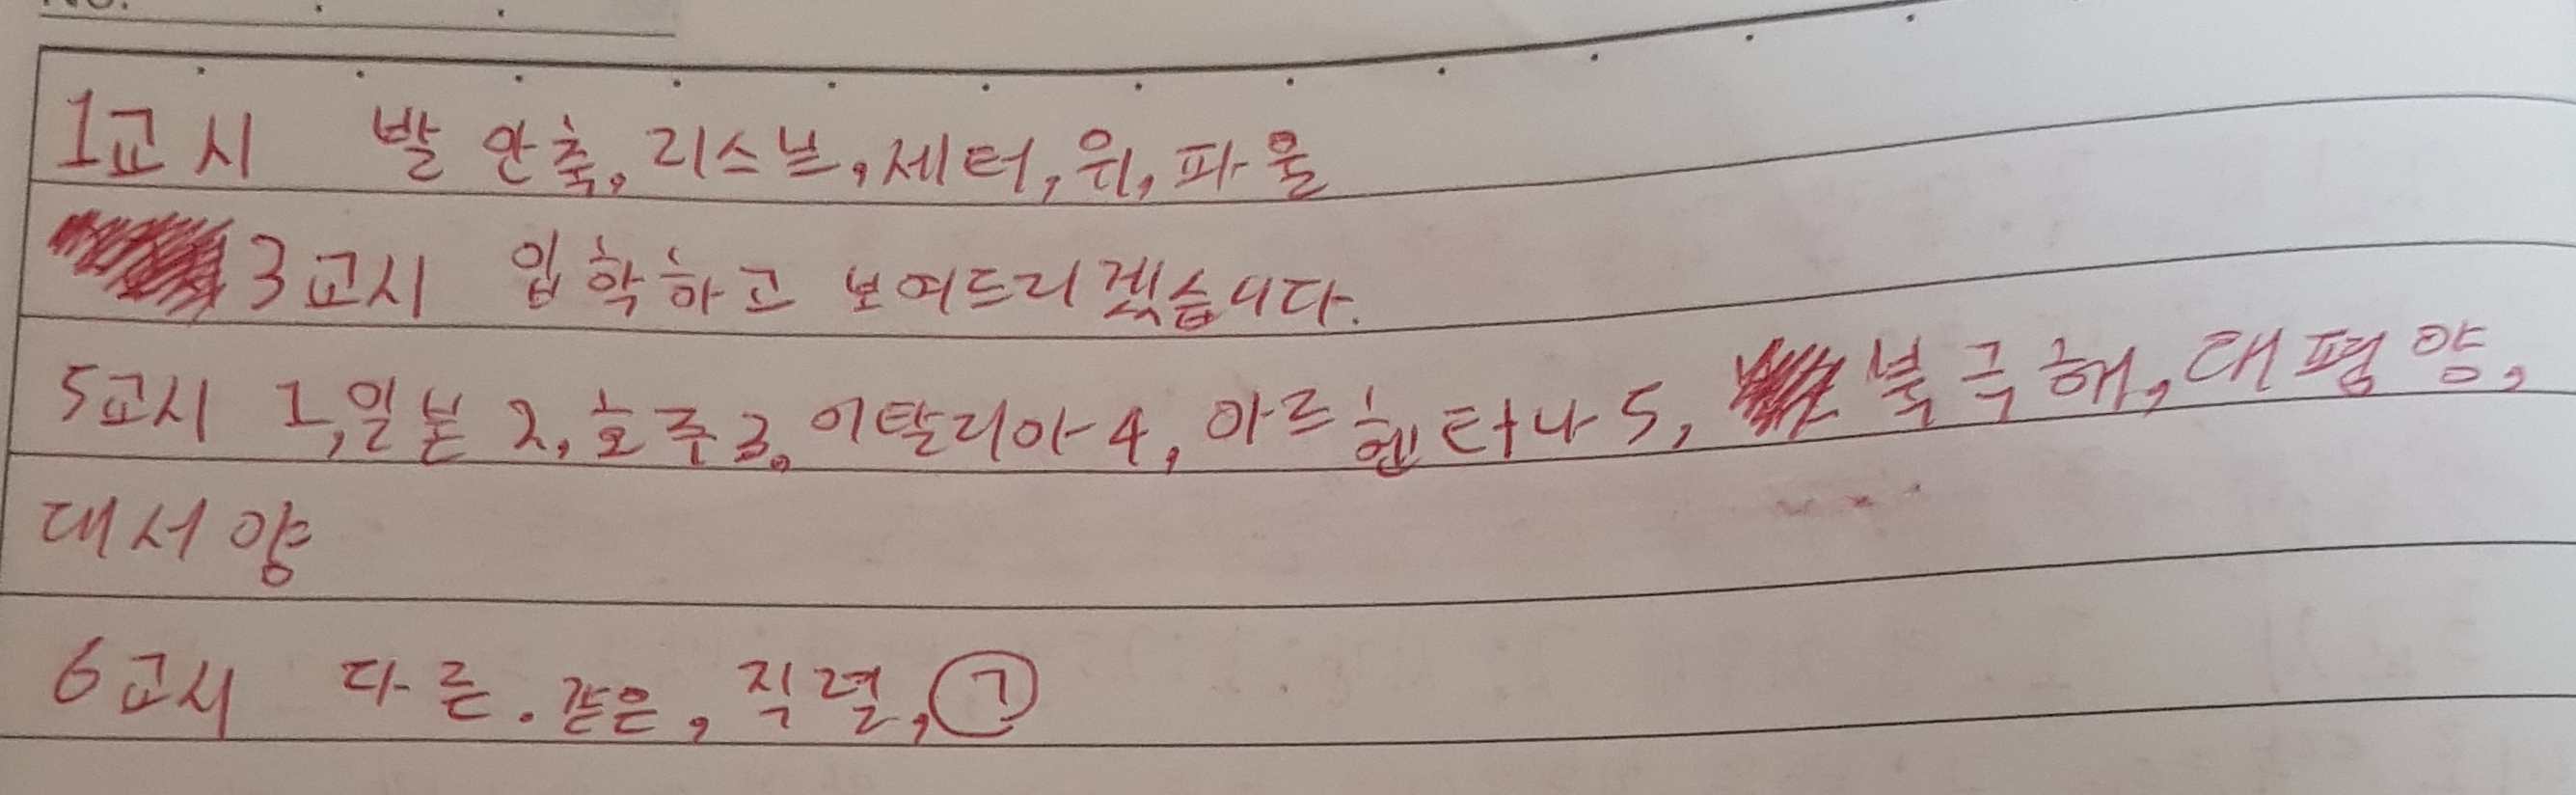 1교시 발 안축, 리스브, 세터, 위, 파울
3교시 입학하고 보여드리겠습니다.
5교시 1, 일본 2, 호주 3, 이탈리아 4, 아르헨타나 5, 북극해, 대평양,
대서양
6교시 다른. 같은, 직렬, ㄱ